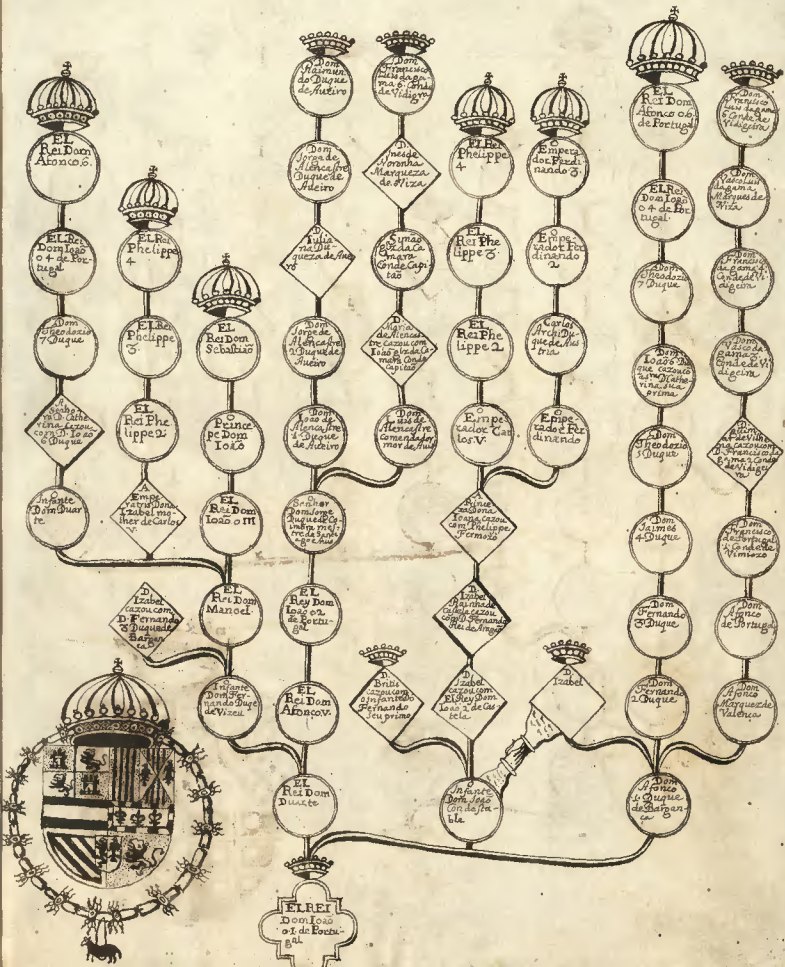 EL
Rei Dom
Afonco. 6.
EL Rei
Dom Ioão
o 4 de Por-
tugal
Dom
Theodozio
7 Duque
A
Senho
ra D. Cathe
rina cazou
com D. Ioão
6 Duque
O
Infante
Dom Duar
te
EL Rei
Phelippe
4
EL Rei
Phelippe
3.
EL
Rei Phe
lippe 2.
A
Empe
ratris Dona
Izabel mo
lher de Carlos
V.
EL
Rei Dom
Sebastião
O
Prince
pe Dom
Ioão
EL
Rei Dom
Ioão o III
EL
Rei Dom
Manoel
D.
Izabel
cazou com
D. Fernando
3 Duque de
Bargan
ca
O
Infante
Dom Fer-
nando Duqe
de Vizeu
Dom
Raimun
do Duque
de Aveiro
Dom
Iorge de
Alencastre
Duque de
Aveiro
D.
Iulia
na Du-
queza de Avei
ro
Dom
Iorge de
Alencastre
2 Duque de
Aveiro
Dom
Ioão de
Alencastre
1. Duque
de Aveiro
O
Senhor
Dom Iorge
Duque de Co
imbra mes
tre de Santi
ago e Avis
EL
Rey Dom
Ioão o 2
de Portu-
gal
EL
Rei Dom
Afonco V.
EL
Rei Dom
Duarte
Dom
Francisco
Luis da ga
ma 6. Con
de Vidigra
D.
Ines de
Noronha
Marqueza
de Niza
glz da Ca
mara
Conde Capi
tão
D.
Maria
de Alencas
tre cazou com
Ioão glz da Ca
mara Conde
capitão
Dom
Luis de
Alencastre
comendador
mor de Avis
EL Rei
Phelippe
4
EL
Rei Phe
lippe 3.
EL
Rei Phe
lippe 2
O
Empe
rador Car
los. V.
A
Prince
za Dona
Ioana cazou
com Phelippe
Fermozo
D.
Izabel
Rainha de
Castela cazou
com D. Fernando
Rei de Aragão
D.
Izabel
cazou com
El Rey Dom
Ioão 2 de Cas
tela
D.
Britis
cazou com
o infante Do
Fernando
seu primo
O
Infante
Dom Ioão
Condesta-
ble
O
Empera
dor Ferdi
nando 3.
O
Empe
rador Fer
dinando
2
Carlos
Archi Du-
que de Aus
tria
O
Empe
rador Fer
dinando
D.
Izabel
EL
Rei Dom
Afonco o 6.
de Portugal
EL Rei
Dom Ioão
o 4 de Por
tugal.
Dom
Theodozio
7 Duque
Dom
Ioão 6 Du
que cazou co
a srã D. Cathe
rina sua
prima
Dom
Theodozio
5 Duque
Dom
Iaimes
4 Duque
Dom
Fernando
3 Duque
Dom
Fernando
2 Duque
Dom
Afonco
1. Duque
de Bargan-
ça
Dom
Francisco
Luis da gama
6 Conde de
Vidigeira
Dom
Vasco Luis
da gama
Marques de
Niza
Dom
Francisco
da gama 4.
Conde de Vi
digeira
Dom
Vasco da
gama 3
Conde de Vi
digeira
cazou com
D. Francisco da
gama 2 Conde
de Vidigei
ra
Dom
Francisco
de Portugal
1. Conde de
Vimiozo
Dom
Afonco
de Portugal
Dom
Afonco
Marquez de
Valença
ELREI
Dom Ioão
o. I. de Portu-
gal